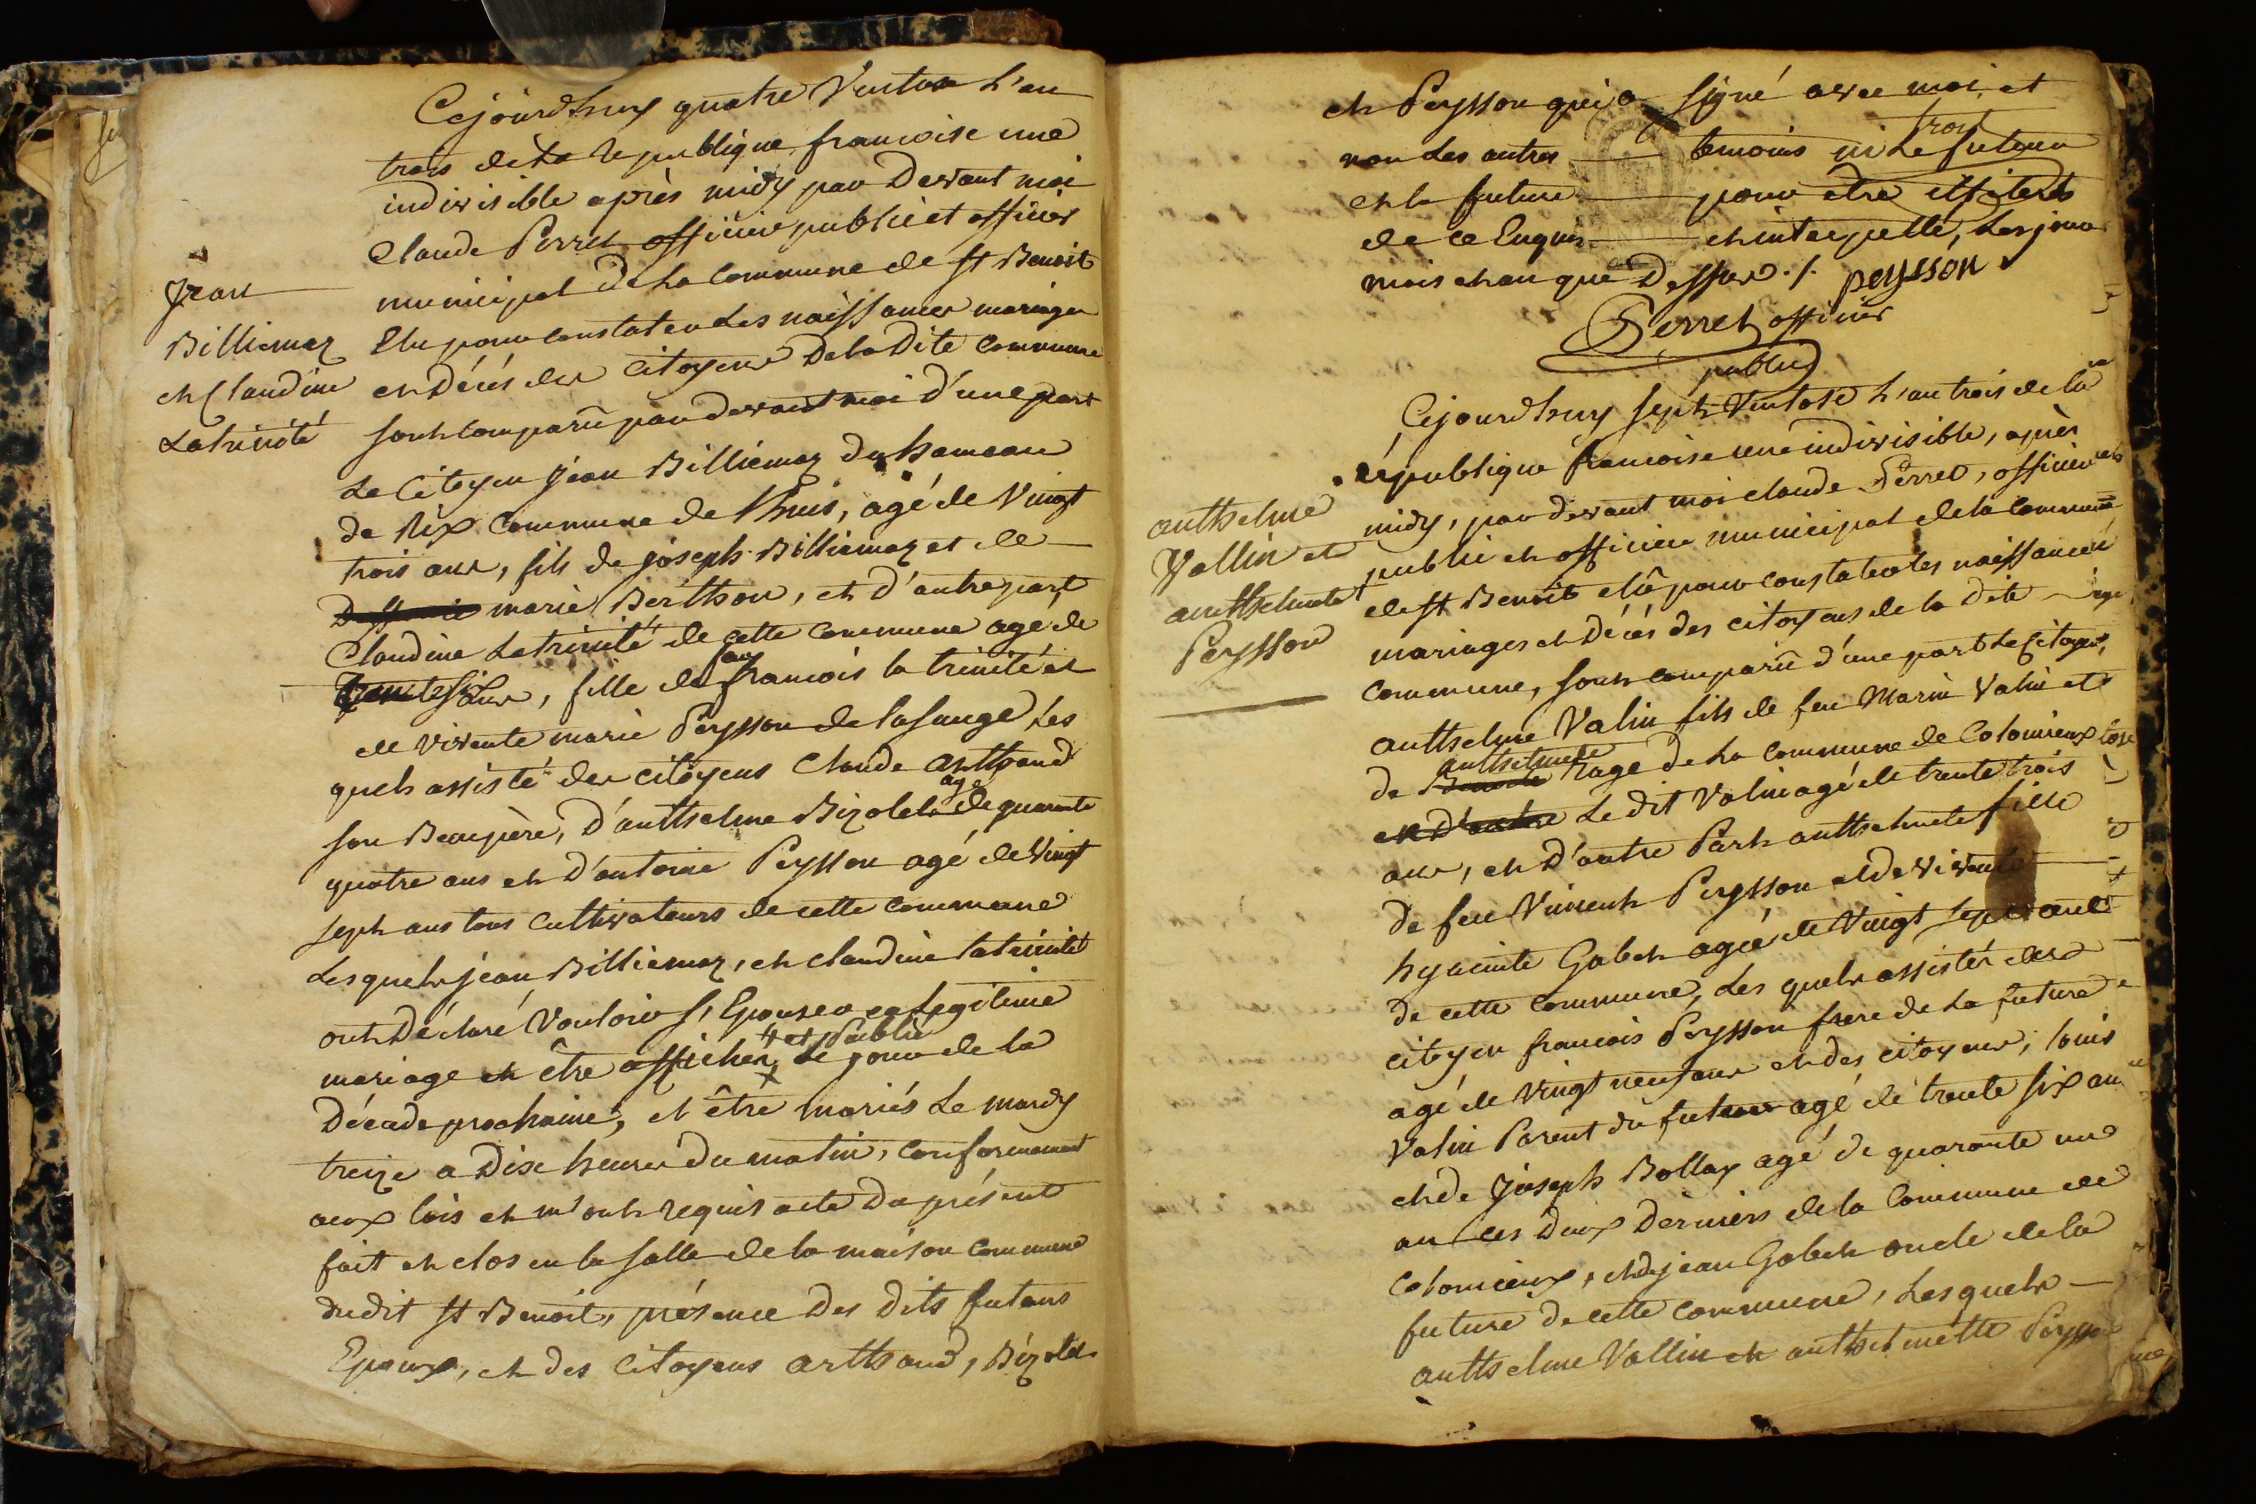 Cejourdhuy quatre Ventose L'an
trois de la republique francoise une
indivisible après midy par Devant moi
Claude Perret officier public et officier
municipal de La Commune de St Benoit
Elu pour constater Les naissances mariages
et Décés des Citoyens De la Dite Commune
sont comparû par devant moi d'une part
Le Citoyen jean Billiemaz du hameau
de Rix Commune de Lhuis, agé de Vingt
trois ans, fils de joseph Billiemaz et de
marie Berthon, et d'autre part
Claudine Latrinité de cette Commune agé de
trente six ans, fille de feu francois la trinité et
de vivente marie Peysson de la sauge Les
quels assisté des citoyens Claude arthaud
son Beaupère, D'anthelme Bizolet agé de quarante
quatre ans et D'antoine Peysson agé de Vingt
sept ans tous Cultivateurs de cette Commune
Lesquels jean Billiemaz, et claudine latrinité
ont Déclaré Vouloir s'Epouser en Legitime
mariage et être afficher et Publié Le jour de la
Décade prochaine, et être mariés Le mardy
treize a Dix heures du matin, Conformement
aux lois et m'ont requis acte Du présent
fait et clos en la salle de la maison Commune
dudit St Benoit, présence Des Dits futurs
Epoux, et des Citoyens arthaud, Bizolet
Jean
Billiemaz
et Claudine
Latrinité
et Peysson qui a signé avec moi et
non Les autres temoins ni Le futeur
et la future pour être illiterés
de ce Enquis et interpellé, Les jour
mois et an que Dessus ./. peysson
Perret officier
public
Cejourdhuy sept Ventose L'an trois de la
republique francoise une indivisible, après
midy, par devant moi claude Perret, officier
public et officier municipal de la Commune
de St Benoit elû pour constater les naissances
mariages et Décés des citoyens de la Dite
Commune, sont comparû d'une part Le Citoyen
anthelme Valin fils de feu Marin Valin et
de anthelmette Trage De La Commune de Colomieux
et D'autre Le dit Valin agé de trente trois
ans, et D'autre Part anthelmete fille
de feu Vincent Peysson et de vivente
hyacinte Gabet agée de Vingt sept ans
de cette Commune, Les quels assistés des
citoyen francois Peysson frere de La future
agé de Vingt neuf ans et des citoyens, louis
Valin Parent du futeur agé de trente six an
et de Joseph Bollay agé de quarante un
an ces Deux Derniers de la Commune de
Colomieux, et de jean Gabet oncle de la
future de cette Commune, Lesquels
anthelme Vallin et anthelmette Peysson
anthelme
Vallin et
anthelmete
Peysson